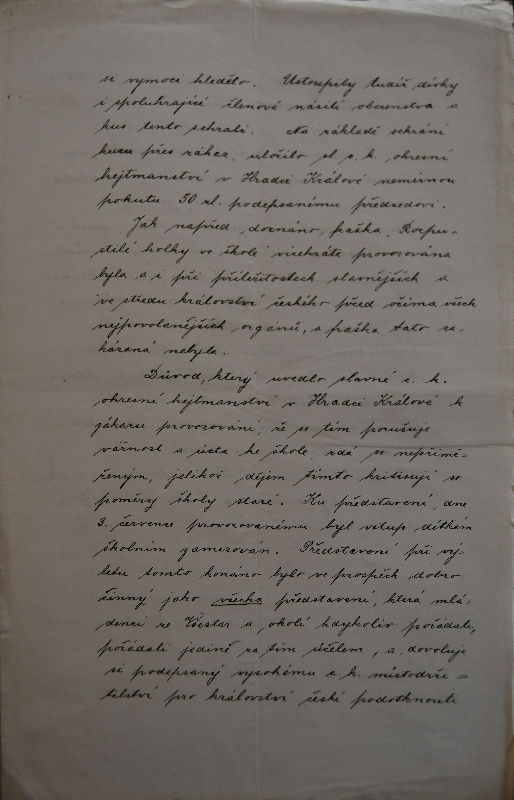 si vymoci hledělo. Ustoupily tudíž dívky
i spoluhrající členové násilí obecenstva a
kus tento sehráli. Na základě sehrání
kusu přes zákaz, uložilo sl. c. k. okresní
hejtmanství v Hradci Králové nemírnou
pokutu 50 zl. podepsanému předsedovi.
Jak napřed doznáno, fraška „Rozpu-
stilé holky ve škole" vícekráte provozována
byla a i při příležitostech slavnějších a
i ve středu království českého před očima všech
nejpovolanějších orgánů, a fraška tato za-
kázaná nebyla.
Důvod, který uvedlo slavné c. k.
okresné hejtmanství v Hradci Králové k
zákazu provozování, že se tím porušuje
vážnost a úcta ke škole, zdá se nepřimě-
řeným, jelikož dějem tímto kritisují se
poměry školy staré. Ku představení, dne
3. července provozovanému byl vstup dítkám
školním zamezován. Představení při vý-
letu tomto konáno bylo ve prospěch dobro-
činný jako všecka představení, která mlá-
denci ze Všestar a okolí kdykoliv pořádali,
pořádali jedině za tím účelem, a dovoluje
si podepsaný vysokému c. k. místodrži-
telství pro království české podotknouti